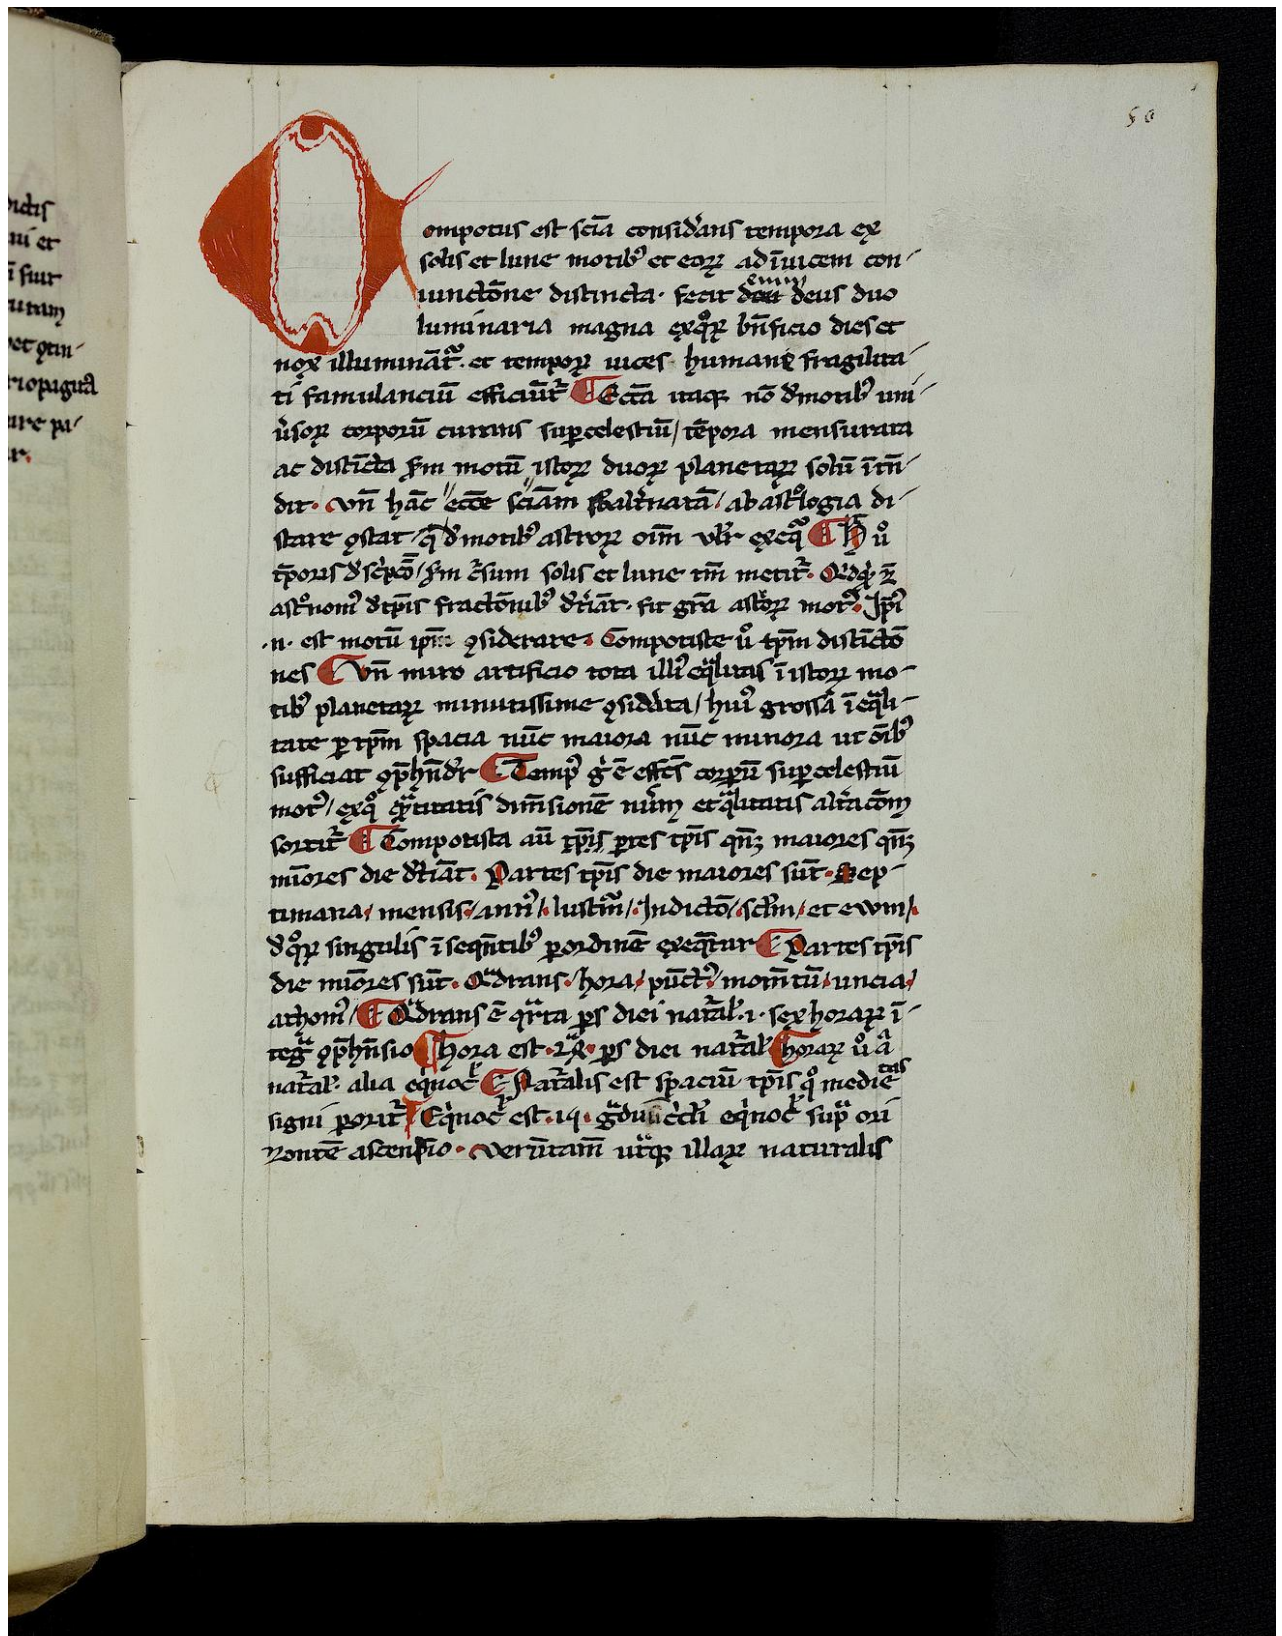 50
ompotus est scīa consid'ans tempora ex
solis et lune motibꝰ et eoꝝ ad īuicem con-
iunctōne distincta. fecit enim deus duo
luminaria magna ex qͦꝝ bn̄ficio dies et
nox illuminātᷓ. et tempoꝝ uices humane fragilita-
ti famulanciū efficiūt᷑ ¶ Ecc̄a itaqꝫ nō d' motibꝰ uni-
ũsoꝝ corporū currens supercelestiū / tēpora mensurata
ac distīcta ẜm motū istoꝝ duoꝝ planetaꝝ solū ītn̄-
dit. vn̄ hāc ecc̄e sciām ab astͦlogia di-
stare ꝯstat / q̄ d' motibꝰ astroꝝ oīm vl'r exeqᷓ ¶ H uͦ
t̄poris / ẜm c᷑sum solis et lune tm̄ metit᷑.
astͦnomꝰ d' tp̄is fractōnibꝰ fit gr̄a motꝰ. Ip̄i
.n. est motū ip̄m ꝯsiderare. Compotiste uͦ tp̄m distīctō
nes ¶ Vn̄ miro artificio tota illiꝰ eqᷓlitas ī istoꝝ mo-
tibꝰ planetaꝝ minutissime ꝯsid'ata / huiꝰ grossā ī eqᷓli-
tate ꝑ tp̄m spacia nūc maiora nūc minora ut oībꝰ
sufficiat ꝯp̄hn̄d'r ¶ Tempꝰ gͥ ē effc̄s corp̄rū supercelestiū
motꝰ / ex qͦ qᷓtitatis dim̄sionē num̄ et qᷓlitatis alt'acōm
sortit᷑ ¶ Compotista aū tp̄is ꝑtes tp̄is qn̄ꝫ maiores qn̄ꝫ
mīores die d'riāt. Partes tp̄is die maiores sūt. Sep-
timana / mensis / annꝰ / lustrᷓm / Indictō / sclm̄ / et ewm /.
d' qͦꝝ singulis ī seqn̄tibꝰ ꝑ ordinē exeqm̄ur ¶ Partes tp̄is
die mīores sūt. Qᷓdrans. hora / pūctꝰ / mom̄tū / uncia /
athomꝰ / ¶ Qᷓdrans ē qᷓrta ꝑs diei nat᷑al'. i. sex horaꝝ ī-
tegᷓ ꝯp̄hn̄sio ¶ hora est .24ᷓ. ꝑs diei nat᷑al' ¶ horaꝝ uͦ a
nat᷑al'. alia eqͥnoc̄ ¶ Nat᷑alis est spaciū tp̄is qͦ medietas
signi ꝑorit᷑ ¶ Eqͥnoc̄ est .14. gᷓduū cͥcl'i eqͥnoc̄ supᷓ ori
zontē ascensio. verūtam̄ utᷓqꝫ illaꝝ naturalis